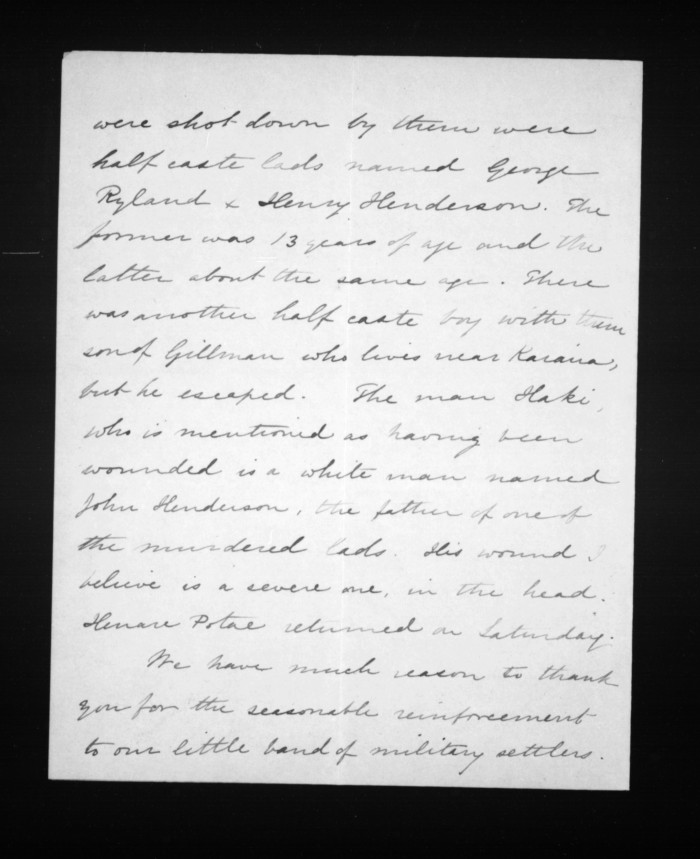 were shot down by them were
half caste lads named George
Ryland & Henry Henderson. The
former was 13 years of age and the
latter about the same age. There
was another half caste boy with them
son of Gillman who lives near Karaua,
but he escaped. The man Haki,
who is mentioned as having been
wounded is a white man named
John Henderson, the father of one of
the murdered lads. His wound I
believe is a severe one, in the head.
Henare Potae returned on Saturday.
We have much reason to thank
you for the seasonable reinforcement
to our little band of military settlers.